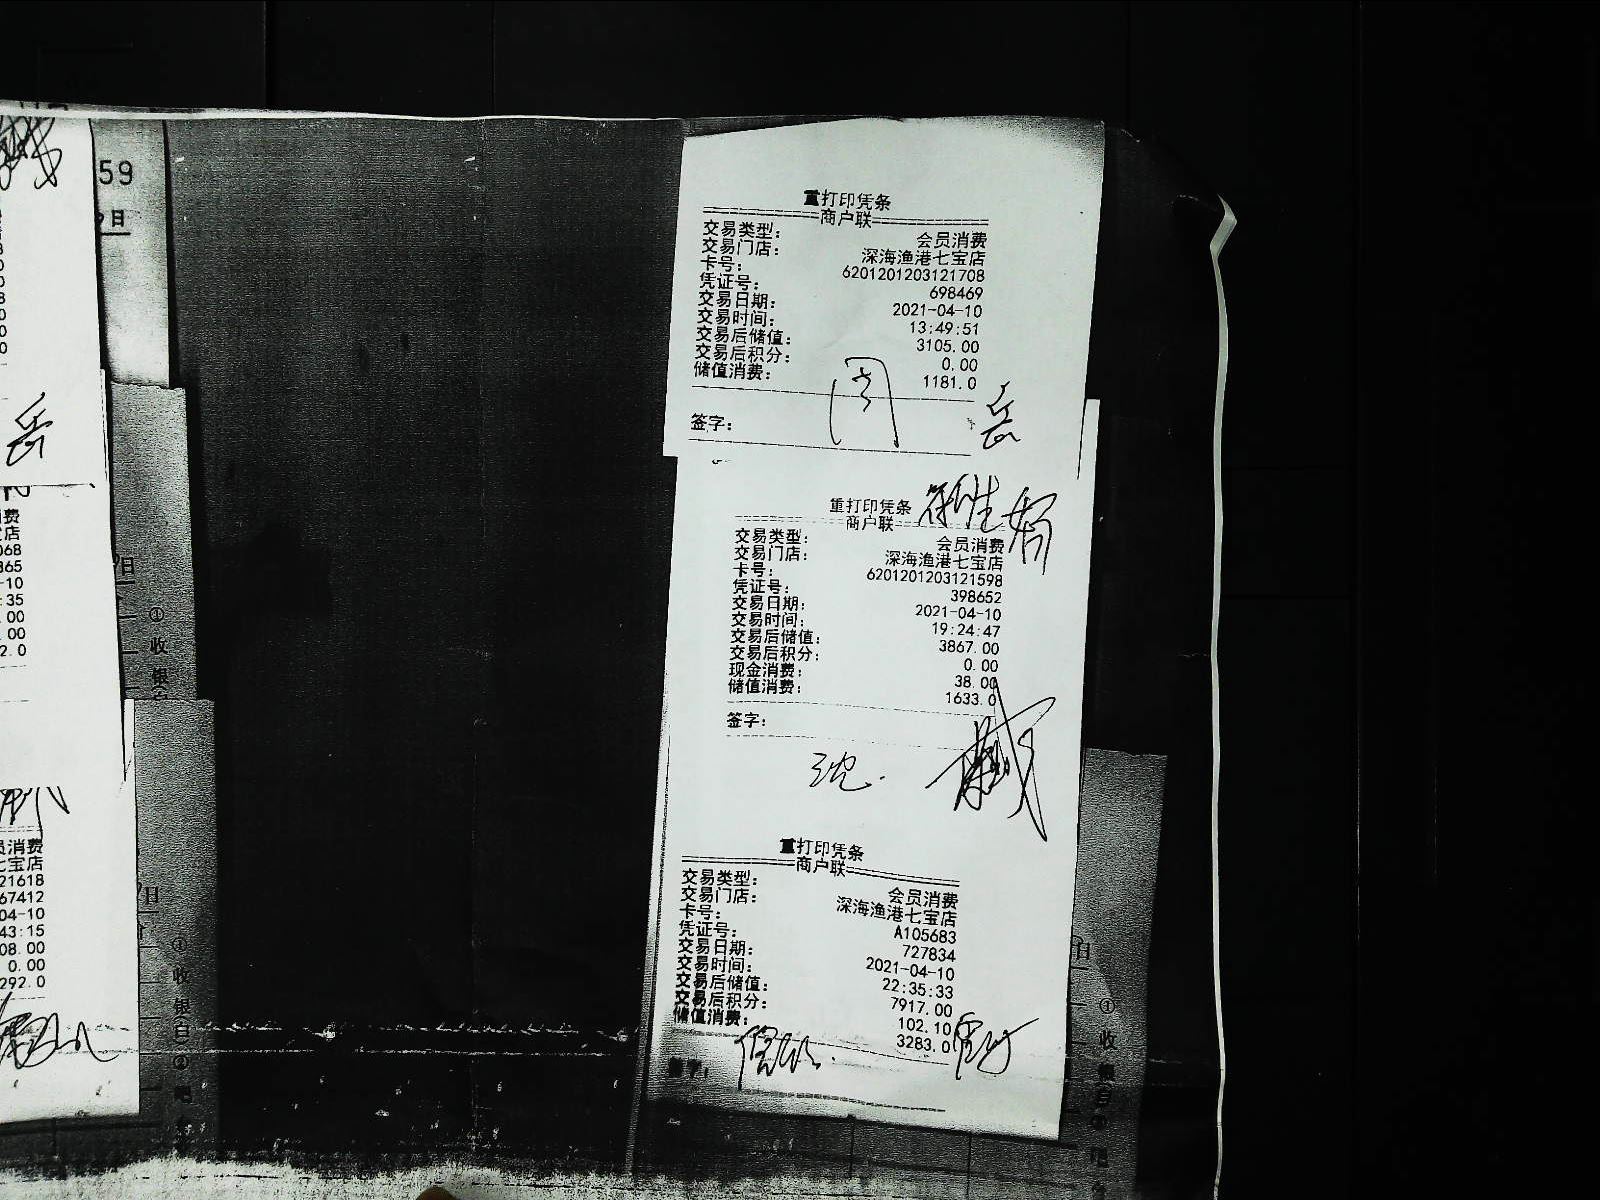 59
9日
岳
费
店
068
365
-10
:35
.00
.00
2.0
日
①收银
员消费
七宝店
21618
67412
04-10
43:15
08.00
0.00
292.0
日
①收银自②吧
重打印凭条
商户联
交易类型: 会员消费
交易门店: 深海渔港七宝店
卡号: 6201201203121708
凭证号: 698469
交易日期: 2021-04-10
交易时间: 13:49:51
交易后储值: 3105.00
交易后积分: 0.00
储值消费: 1181.0
签字:
岳
重打印凭条
商户联
交易类型: 会员消费
交易门店: 深海渔港七宝店
卡号: 6201201203121598
凭证号: 398652
交易日期: 2021-04-10
交易时间: 19:24:47
交易后储值: 3867.00
交易后积分: 0.00
现金消费: 38.00
储值消费: 1633.0
签字:
沈
重打印凭条
商户联
交易类型: 会员消费
交易门店: 深海渔港七宝店
卡号: A105683
凭证号: 727834
交易日期: 2021-04-10
交易时间: 22:35:33
交易后储值: 7917.00
交易后积分: 102.10
储值消费: 3283.0
签字:
日
①收银自②吧